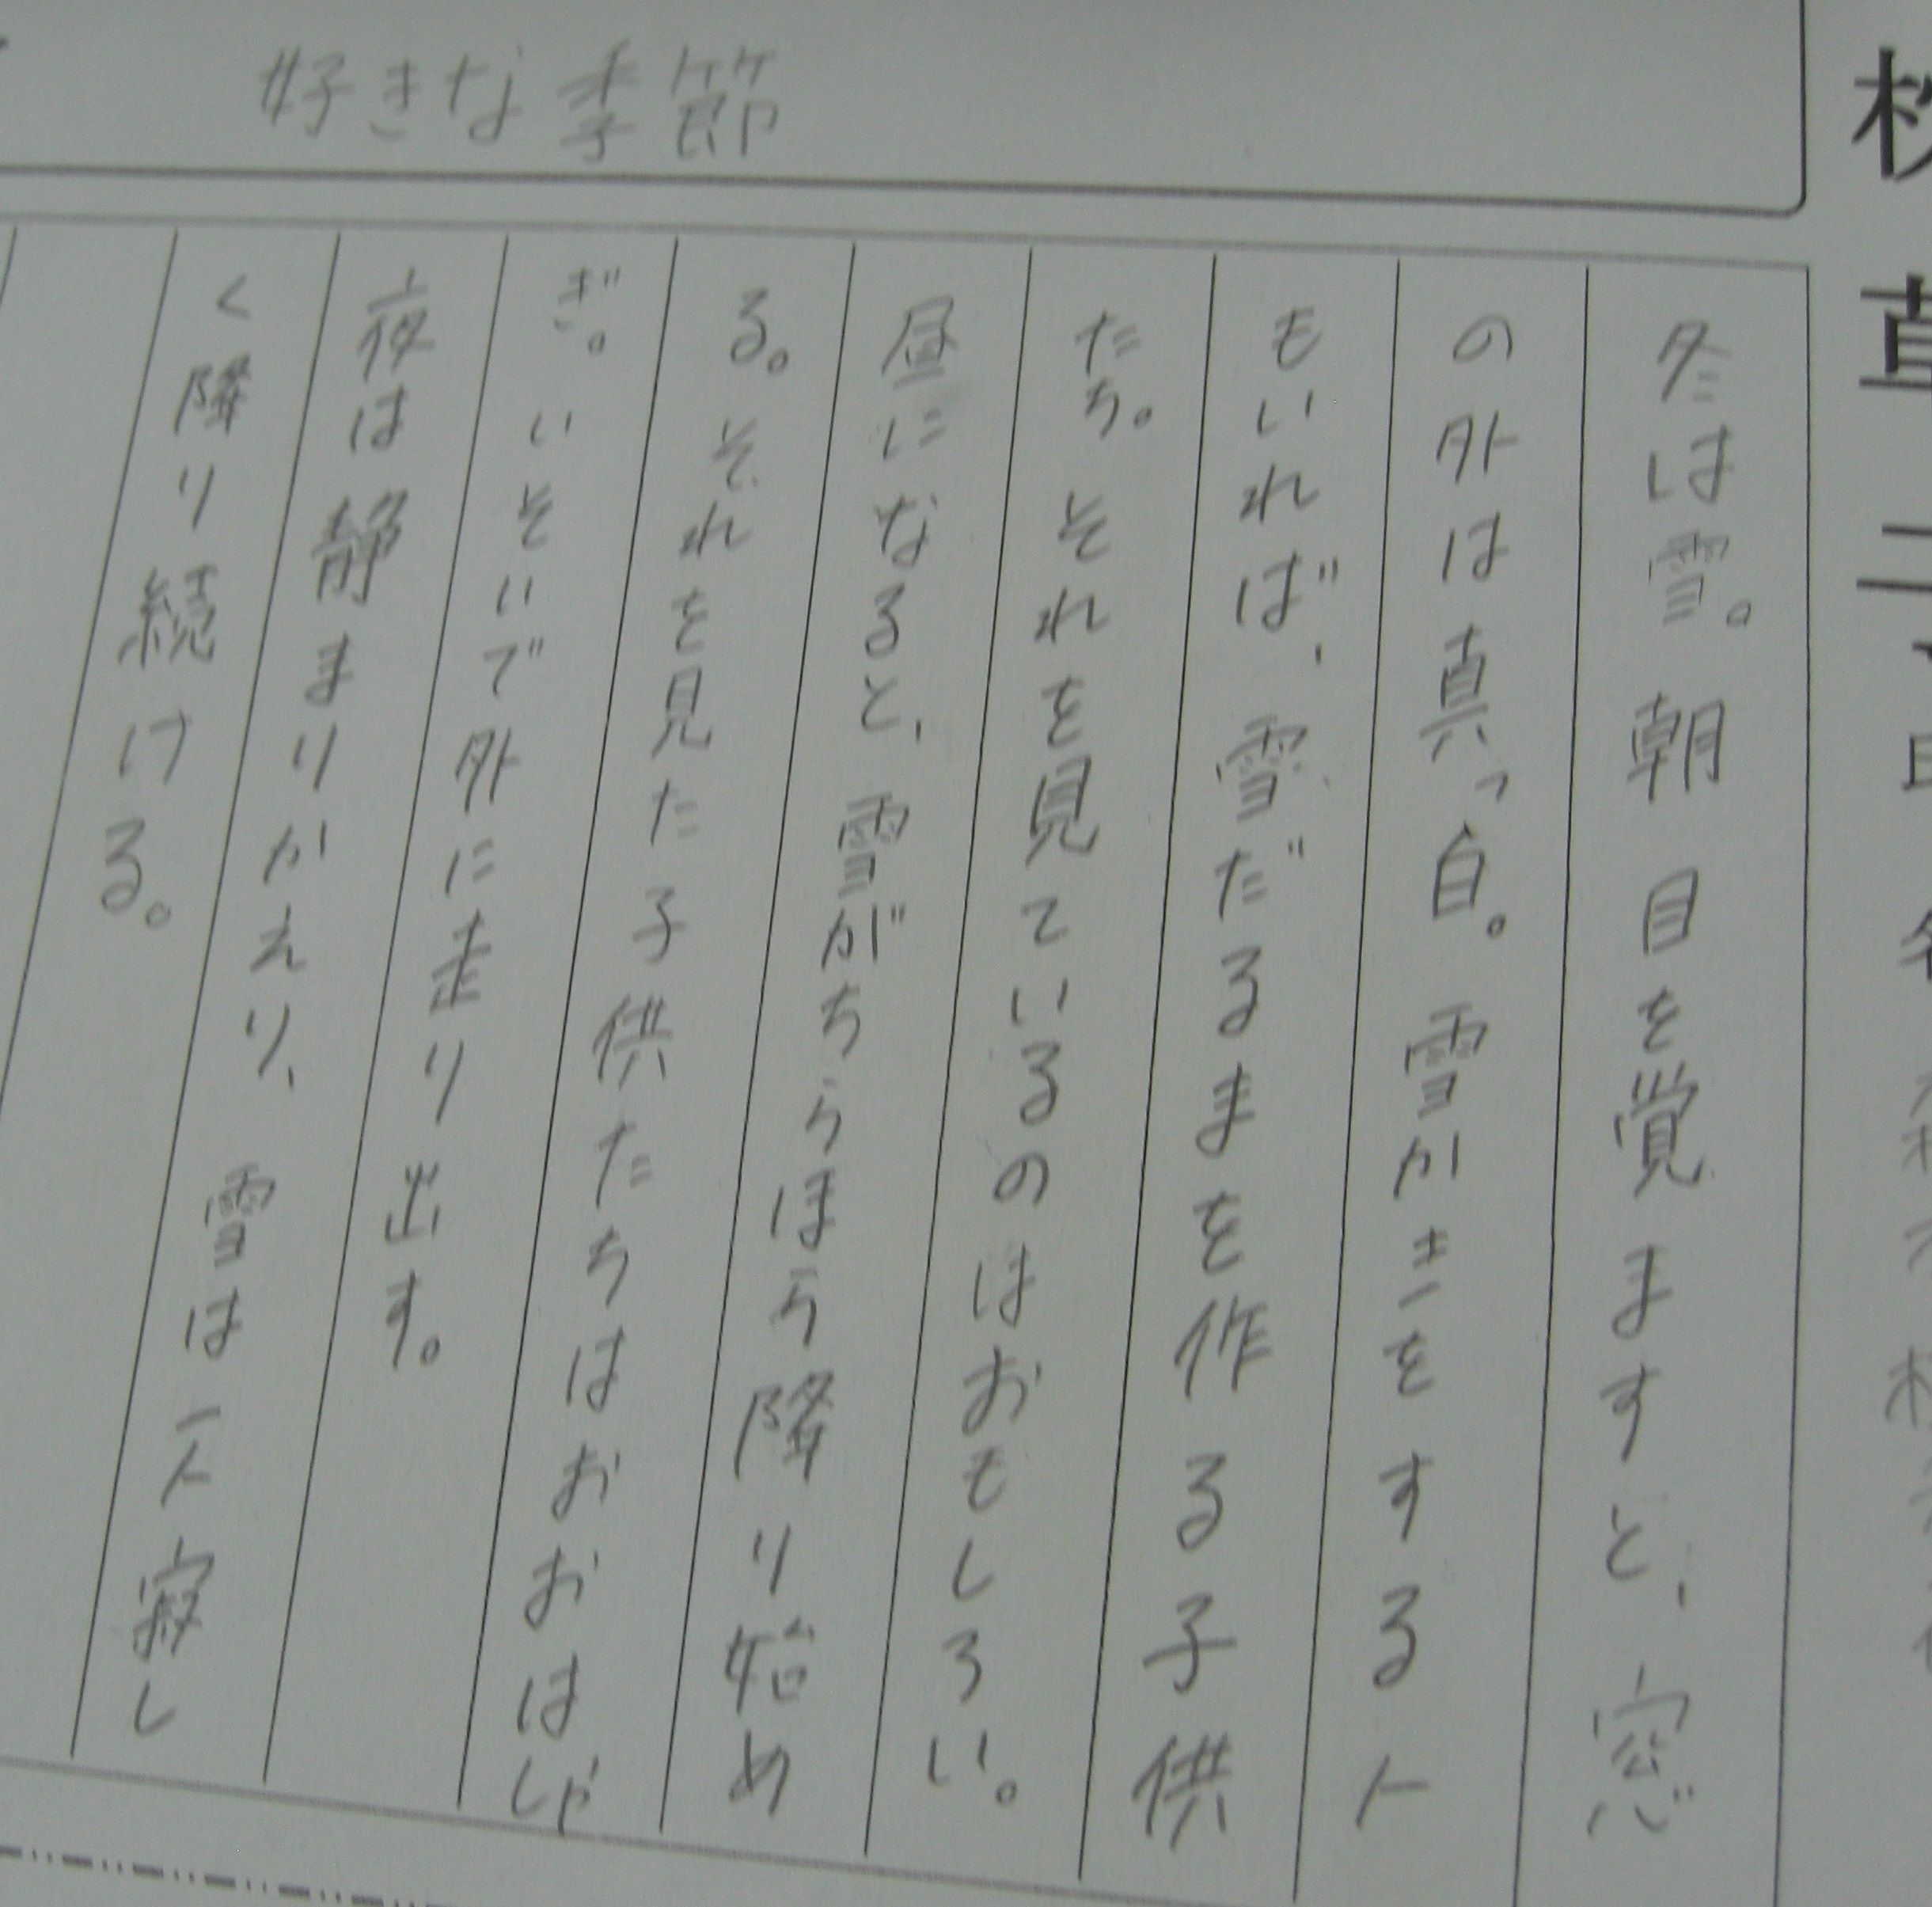 好きな季節
冬は雪。朝目を覚ますと、窓
の外は真っ白。雪かきをする人
もいれば、雪だるまを作る子供
たち。それを見ているのはおもしろい。
昼になると、雪がちらほら降り始め
る。それを見た子供たちはおおはしゃ
ぎ。いそいで外に走り出す。
夜は静まりかえり、雪は一人寂し
く降り続ける。